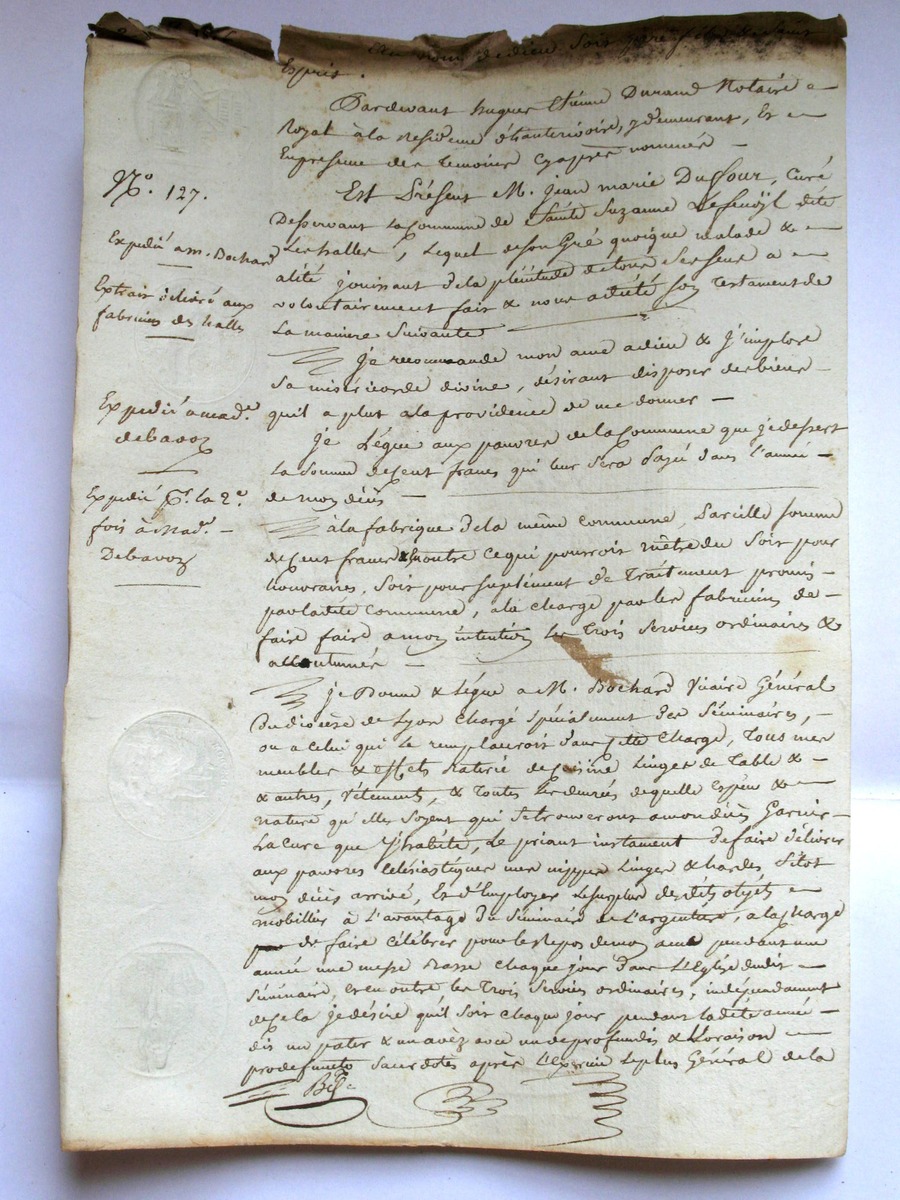 Au nom de dieu soit père, fils & Saint
Esprit.
Pardevant hugues Etienne Durand Notaire
Royal à la Residence de hauterivoire, y demeurant, Et
En presence des temoins Cyaprès nommés
Est Présent M. jean marie Dufour, Curé
Desservant la Commune de Sainte Suzanne Lestra, dite
Les halles, Lequel de son Gré quoique malade &
alité jouissant de la plénitude de tous ses sens a
volontairement fait & nous a dicté son testament de
La maniere Suivante
je recommande mon ame a dieu & j'implore
Sa miséricorde divine, désirant disposer des biens
quil a plut a la providence de me donner
je Lègue aux pauvres de la Commune que je dessert
La Somme de Cent francs qui leur Sera payé dans l'année
de mon décès
à la fabrique de la même Commune, Pareille somme
de Cent francs & En outre Ce qui pourroit m'être du Soit pour
honoraires, Soit pour suplément de Traitement promis
par ladite Commune, a la charge par les fabriciens de
faire faire a mon intention Les Trois Services ordinaires &
accoutumés
je Donne & Lègue a M. Bochard Vicaire Général
Du diocèse de Lyon Chargé spécialement des Séminaires,
ou a Celui qui Le remplaceroit dans Cette Charge, Tous mes
meubles & effets batterie de Cuisine Linges de Table &
& autres, Vêtements, & Toutes Les denrés de quelle Espèce &
nature qu'elles soyent qui Se trouveront a mon décès Garnir
La Cure que j'habite, Le priant instament de faire délivrer
aux pauvres Eclésiastiques mes nippes Linges & hardes, Sitot
mon décès arrivé, Et d'Employer Le surplus desdits objets
mobiliés à L'avantage Du Séminaire de L'argentiere, a la Charge
de faire Célébrer pour le Repos de mon ame pendant une
année une messe Basse Chaque jour dans L'Eglise dudit
Séminaire, Et en outre les Trois Services ordinaires, indépendament
de Cela je désire qu'il Soit Chaque jour pendant ladite année
dis un pater & un avéz avec un de profundis & L'oraison
pro defuncto Sacerdotes après L'Exercice Le plus Général de la
N.º 127.
Expedié a m. Bochard
Extrait délivré aux
fabriciens des halles
Expedié a mad.e
debavoz
Expedié p.r la 2.e
fois à Mad.e
Debavoz